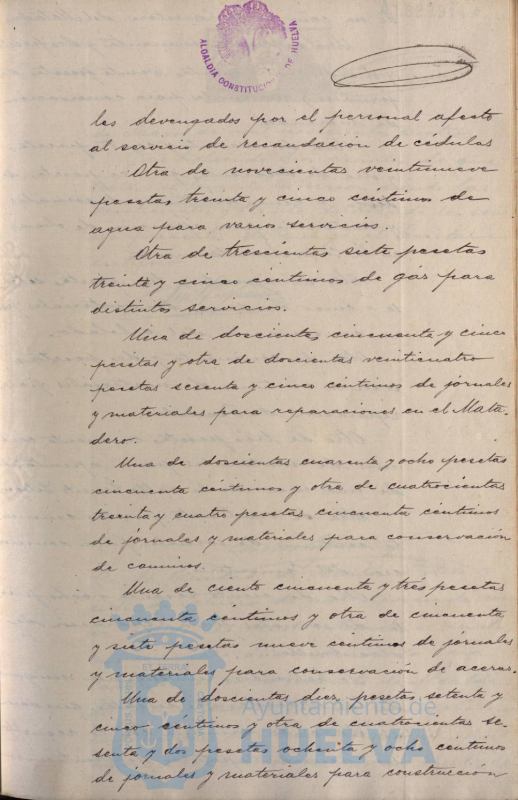 ALCALDIA CONSTITUCIONAL DE HUELVA
les devengados por el personal afecto
al servicio de recaudación de cédulas
Otra de novecientas veintinueve
pesetas treinta y cinco céntimos de
agua para varios servicios.
Otra de trescientas siete pesetas
treinta y cinco céntimos de gas para
distintos servicios.
Una de doscientas cincuenta y cinco
pesetas y otra de doscientas veinticuatro
pesetas sesenta y cinco céntimos de jornales
y materiales para reparaciones en el Mata-
dero.
Una de doscientas cuarenta y ocho pesetas
cincuenta céntimos y otra de cuatrocientas
treinta y cuatro pesetas cincuenta céntimos
de jórnales y materiales para conservación
de caminos.
Una de ciento cincuenta y trés pesetas
cincuenta céntimos y otra de cincuenta
y siete pesetas nueve céntimos de jórnales
y materiales para conservación de aceras.
Una de doscientas diez pesetas setenta y
cinco céntimos y otra de cuatrocientas se-
senta y dos pesetas ochenta y ocho céntimos
de jornales y materiales para construcción
Ayuntamiento de
HUELVA